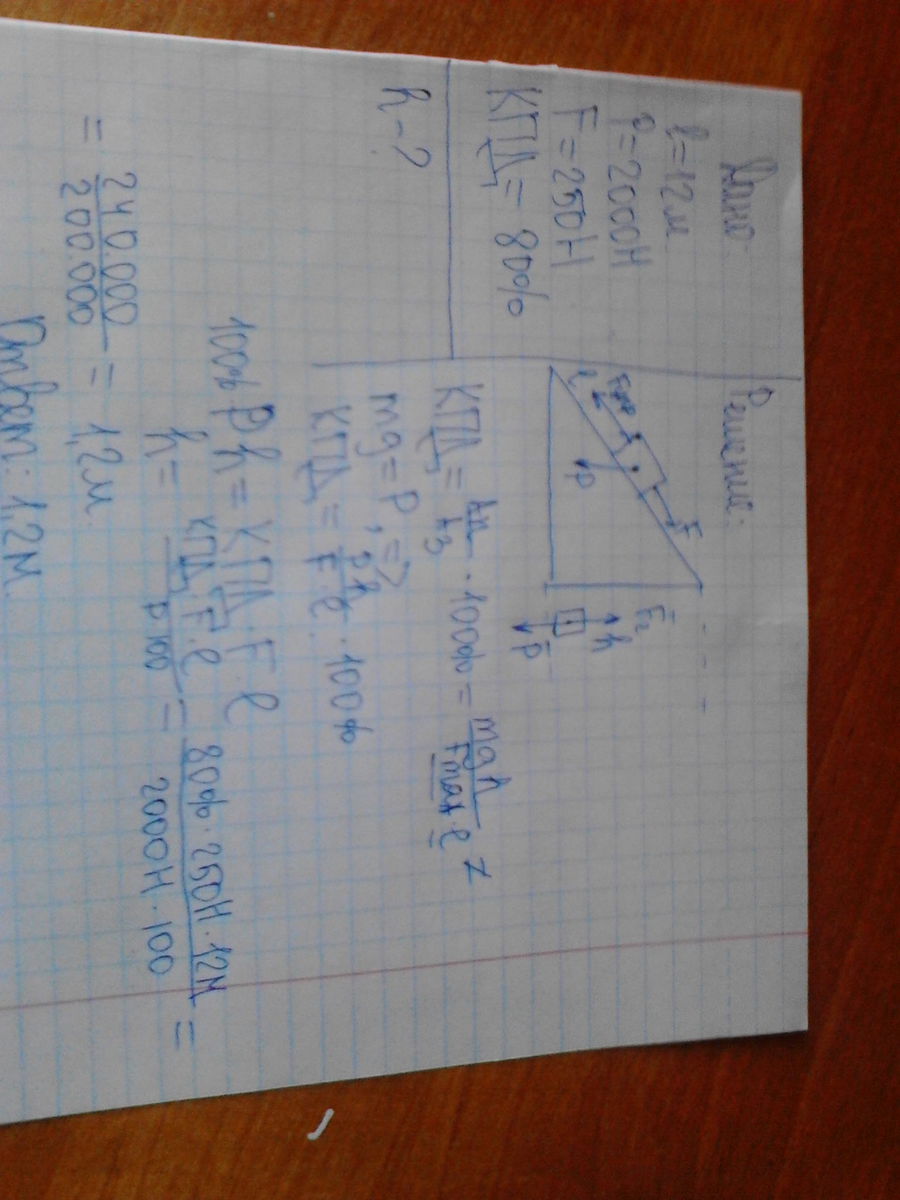 Дано:
l=12м
P=2000Н
F=250Н
КПД=80%
h-?
Решение.
Fтр
F
P
l
F₂
h
P
КПД = Aп/Aз · 100% = mgh/Fmax·l
mg=P, =>
КПД = Ph/Fl · 100%
100% Ph = КПД F·l
h = КПД F·l/P·100 = 80%·250Н·12м/2000Н·100 =
= 240.000/200.000 = 1,2м.
Ответ: 1,2м